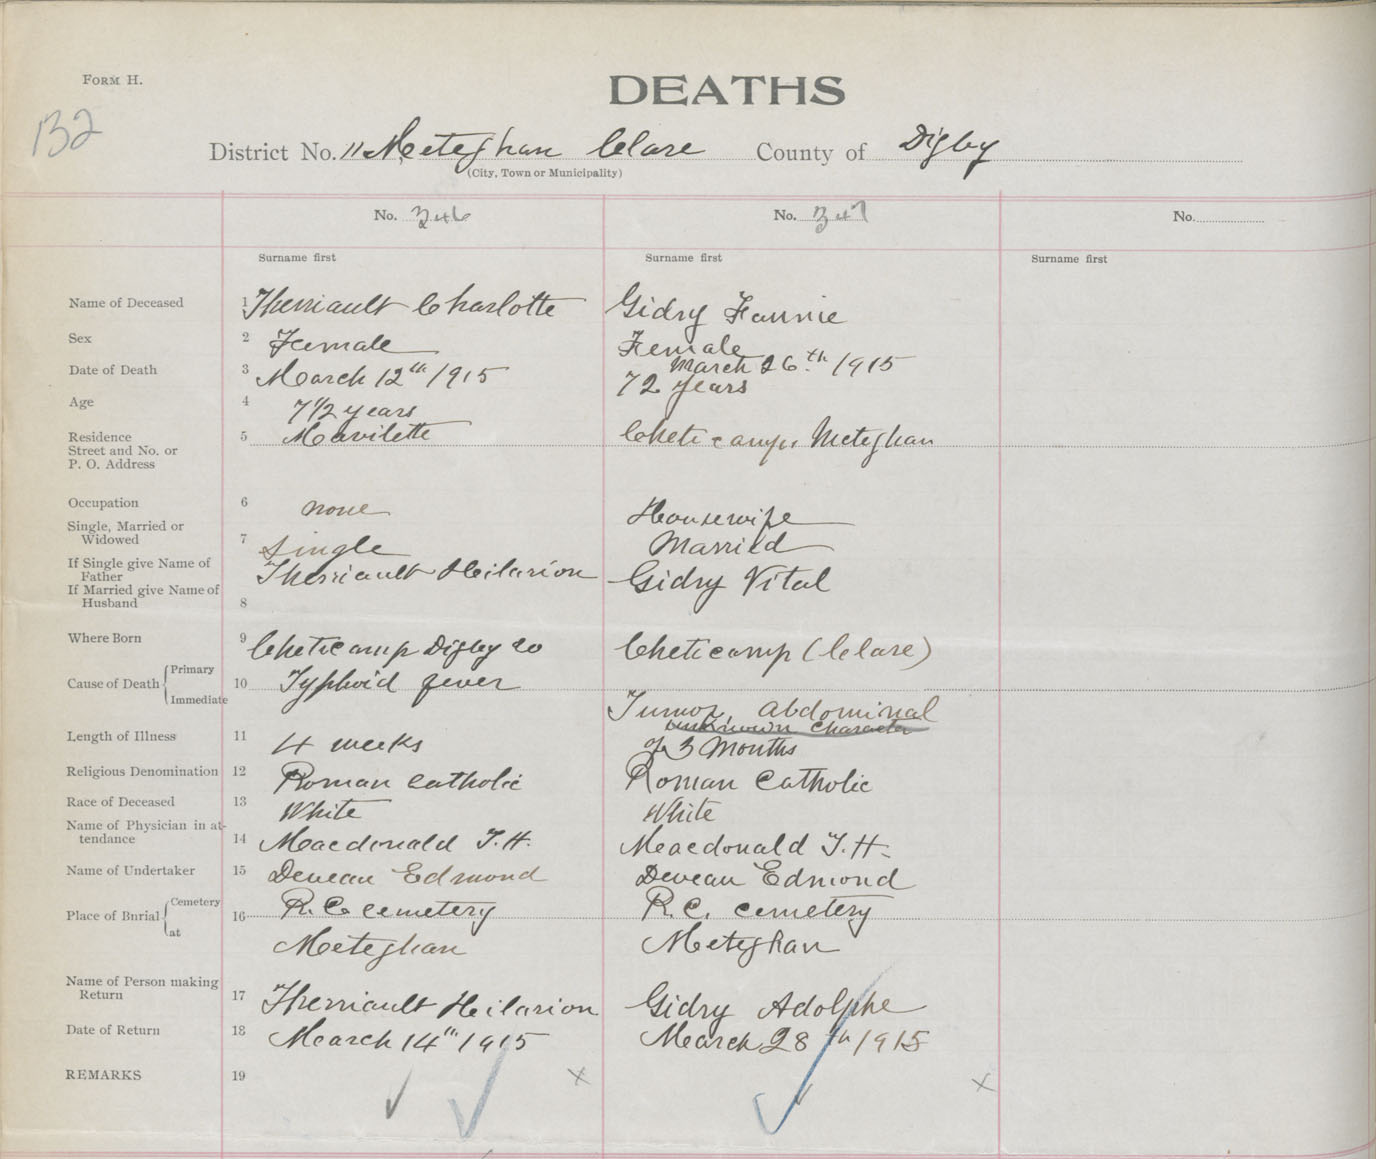 FORM H.
DEATHS
132
District No. 11 Meteghan Clare County of Digby
(City, Town or Municipality)
No. 346 No. 347 No.
Surname first Surname first Surname first
Name of Deceased 1 Therriault Charlotte Gidry Fannie
Sex 2 Female Female
Date of Death 3 March 12th 1915 March 26th 1915
Age 4 7 1/2 years 72 years
Residence 5 Mavilette Cheticamp, Meteghan
Street and No. or
P. O. Address
Occupation 6 none Housewife
Single, Married or
Widowed 7 Single Married
If Single give Name of
Father Therriault Heilarion Gidry Vital
If Married give Name of
Husband 8
Where Born 9 Cheticamp Digby Co Cheticamp (Clare)
Cause of Death { Primary
10 Typhoid fever
Immediate Tumor, abdominal
unknown character
Length of Illness 11 4 weeks of 3 Months
Religious Denomination 12 Roman Catholic Roman Catholic
Race of Deceased 13 White White
Name of Physician in at-
tendance 14 Macdonald T.H. Macdonald T.H.
Name of Undertaker 15 Deveau Edmond Deveau Edmond
Place of Burial { Cemetery 16 R.C. cemetery R.C. cemetery
at Meteghan Meteghan
Name of Person making
Return 17 Therriault Heilarion Gidry Adolphe
Date of Return 18 March 14th 1915 March 28th 1915
REMARKS 19 x x